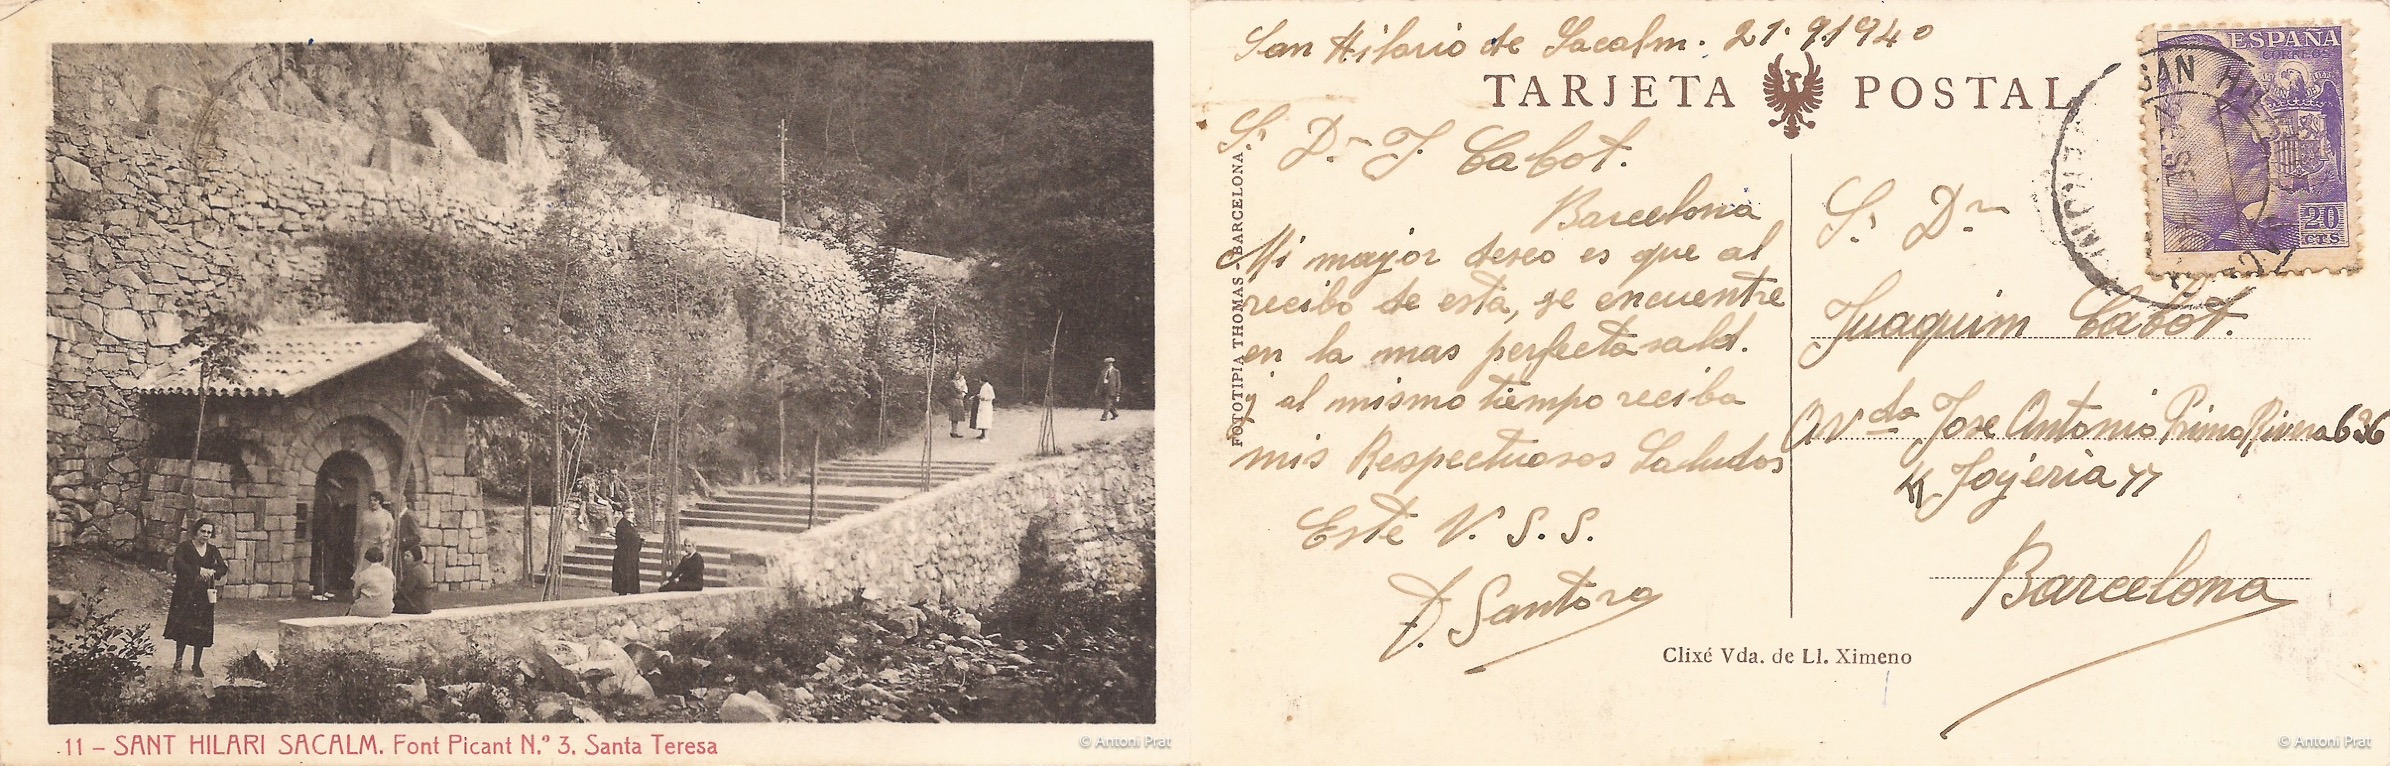 11 – SANT HILARI SACALM. Font Picant N.º 3, Santa Teresa
© Antoni Prat
San Hilario de Sacalm. 21.9.1940
TARJETA POSTAL
Sr Dn J. Cabot.
Barcelona
Mi mayor deseo es que al
recibo de esta, se encuentre
en la mas perfecta sald.
y al mismo tiempo reciba
mis Respectuosos Saludos
Este V. S. S.
Santora
FOTOTIPIA THOMAS - BARCELONA
ESPAÑA
CORREOS
20
CTS
SAN HIL
Sr Dn
Juaquim Cabot.
Avda Jose Antonio Primo Rivera 636
"Joyeria"
Barcelona
Clixé Vda. de Ll. Ximeno
© Antoni Prat